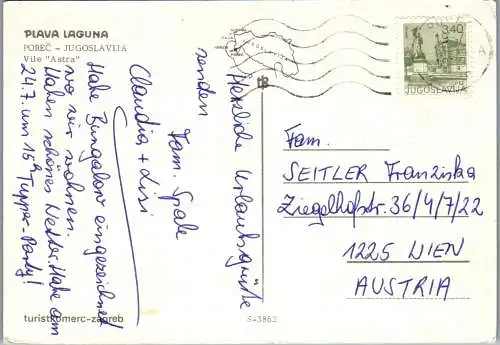 PLAVA LAGUNA
POREČ - JUGOSLAVIJA
Vile "Astra"
340
JUGOSLAVIJA
Herzliche Urlaubsgrüße
senden
Fam. Spale
Claudia + Lisi
Habe Bungalow eingezeichnet
wo wir wohnen.
Haben schönes Wetter. Habe am
24.7. um 15h Tupper-Party!
Fam.
SEITLER Franziska
Ziegelhofstr. 36/4/7/22
1225 WIEN
AUSTRIA
turistkomerc-zagreb
S-3862